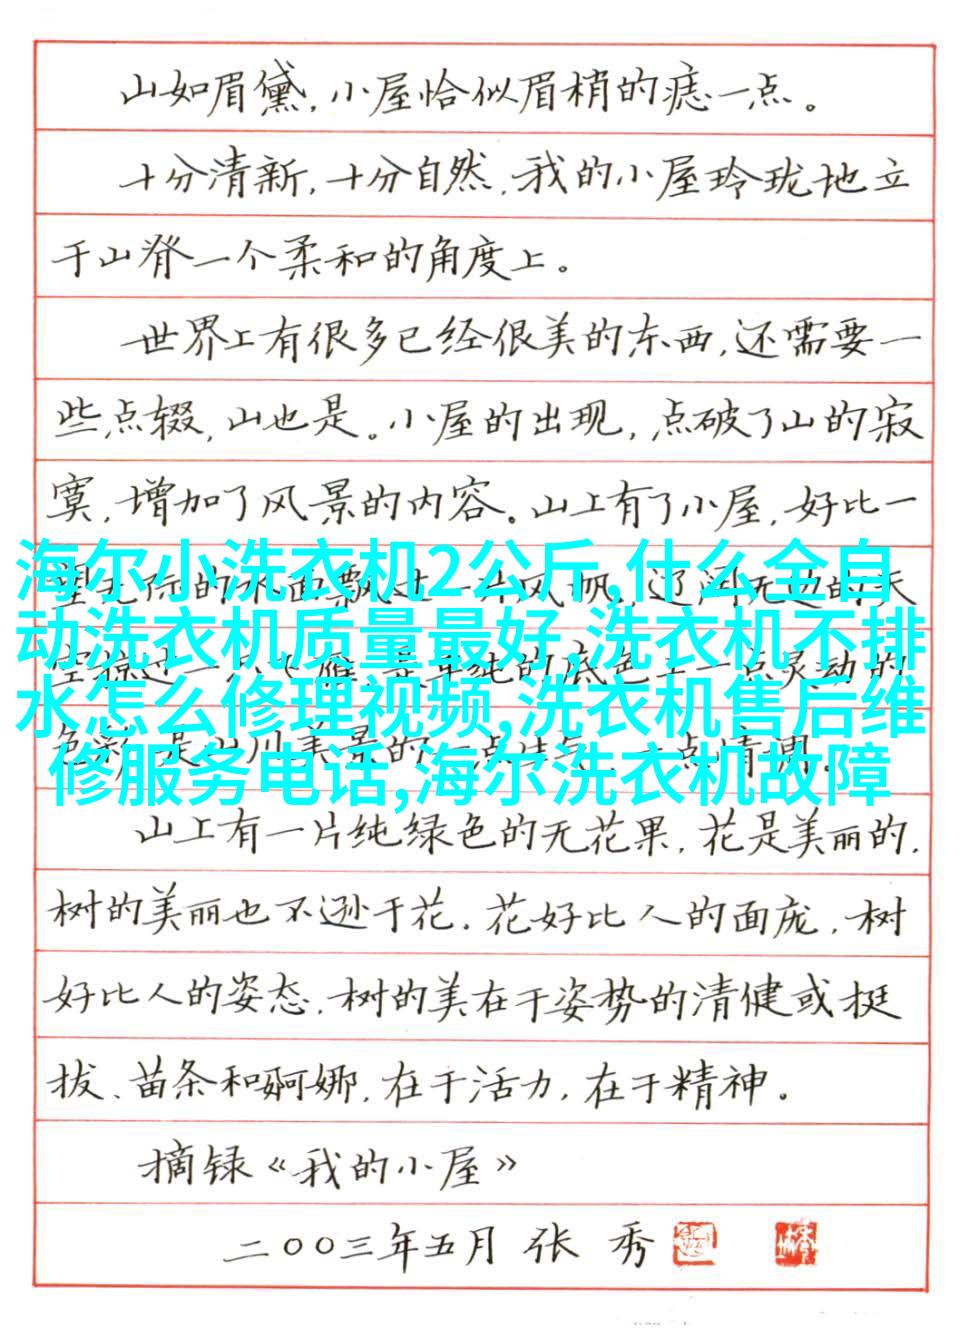 山如眉黛,小屋恰似眉梢的痣一点。
十分清新,十分自然,我的小屋玲珑地立
于山脊一个柔和的角度上。
世界上有很多已经很美的东西,还需要一
些点缀,山也是。小屋的出现,点破了山的寂
寞,增加了风景的内容。山上有了小屋,好比一
海尔小洗衣机2公斤,什么全自
动洗衣机质量最好,洗衣机不排
水怎么修理视频,洗衣机售后维
修服务电话,海尔洗衣机故障
山上有一片纯绿色的无花果,花是美丽的,
树的美丽也不逊于花。花好比人的面庞,树
好比人的姿态,树的美在于姿势的清健或挺
拔、苗条和婀娜,在于活力,在于精神。
摘录《我的小屋》
二〇〇三年五月 张 秀